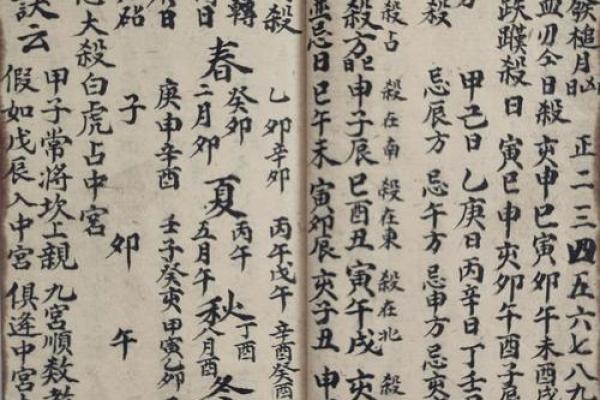 正二三四五六七八九
殺日 亥申巳寅卯午未酉戌
殺日 寅巳申亥卯午酉子辰
甲己日 乙庚日 丙辛日 丁壬日
殺 忌辰方 忌午方 忌申方 忌亥
殺占 殺在南 殺在東 殺在北 殺
殺方 申子辰 巳酉丑 寅午戌 亥
忌日 巳午未 寅卯辰 亥子丑 申
殺 乙卯辛卯 丙午戊午 辛酉癸酉
轉 春 癸卯 二月卯 夏 丙午 五月午 秋 丁酉 八月酉 冬
日 庚申辛酉 壬子癸亥 甲寅乙卯
子 卯 午
大殺白虎占中宮
甲子常將坎上親 九宮順数
訣云 假如戊辰入中宮 俱逢中宮